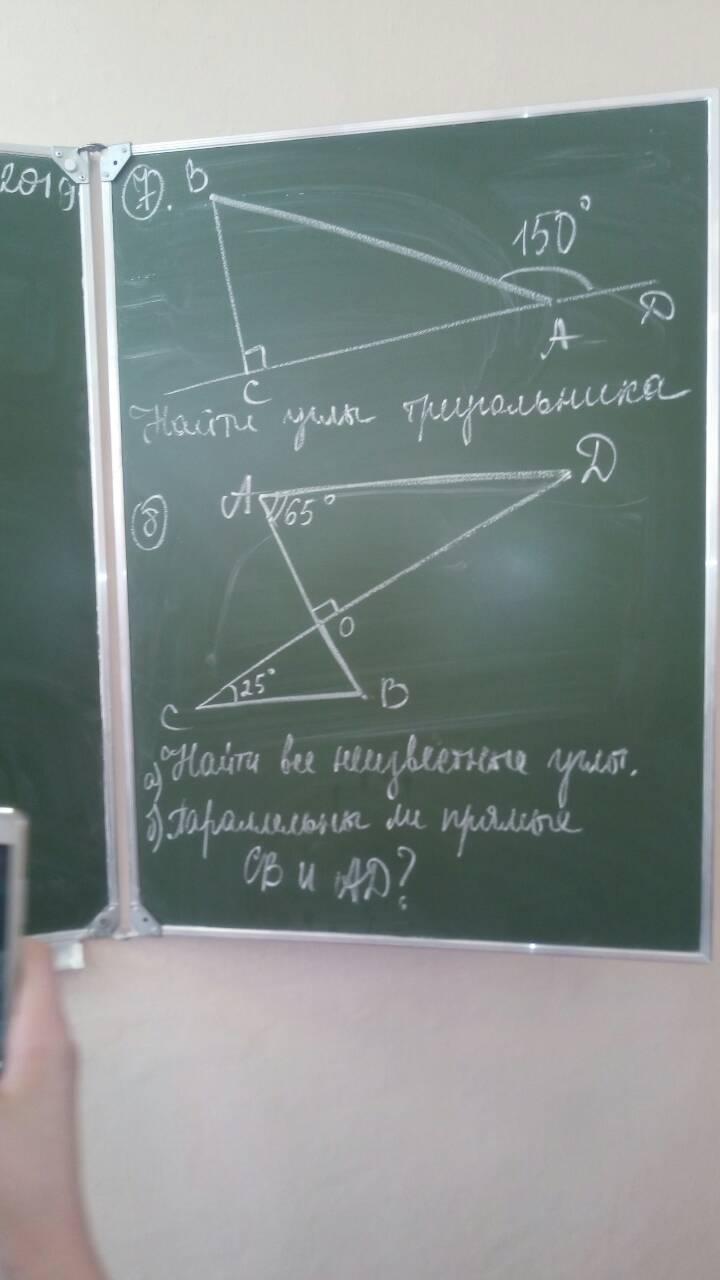 2019
7. В
150°
А
D
С
Найти углы треугольника
8
А
D
65°
О
25°
С
В
а) Найти все неизвестные углы.
б) Параллельны ли прямые
СВ и AD?